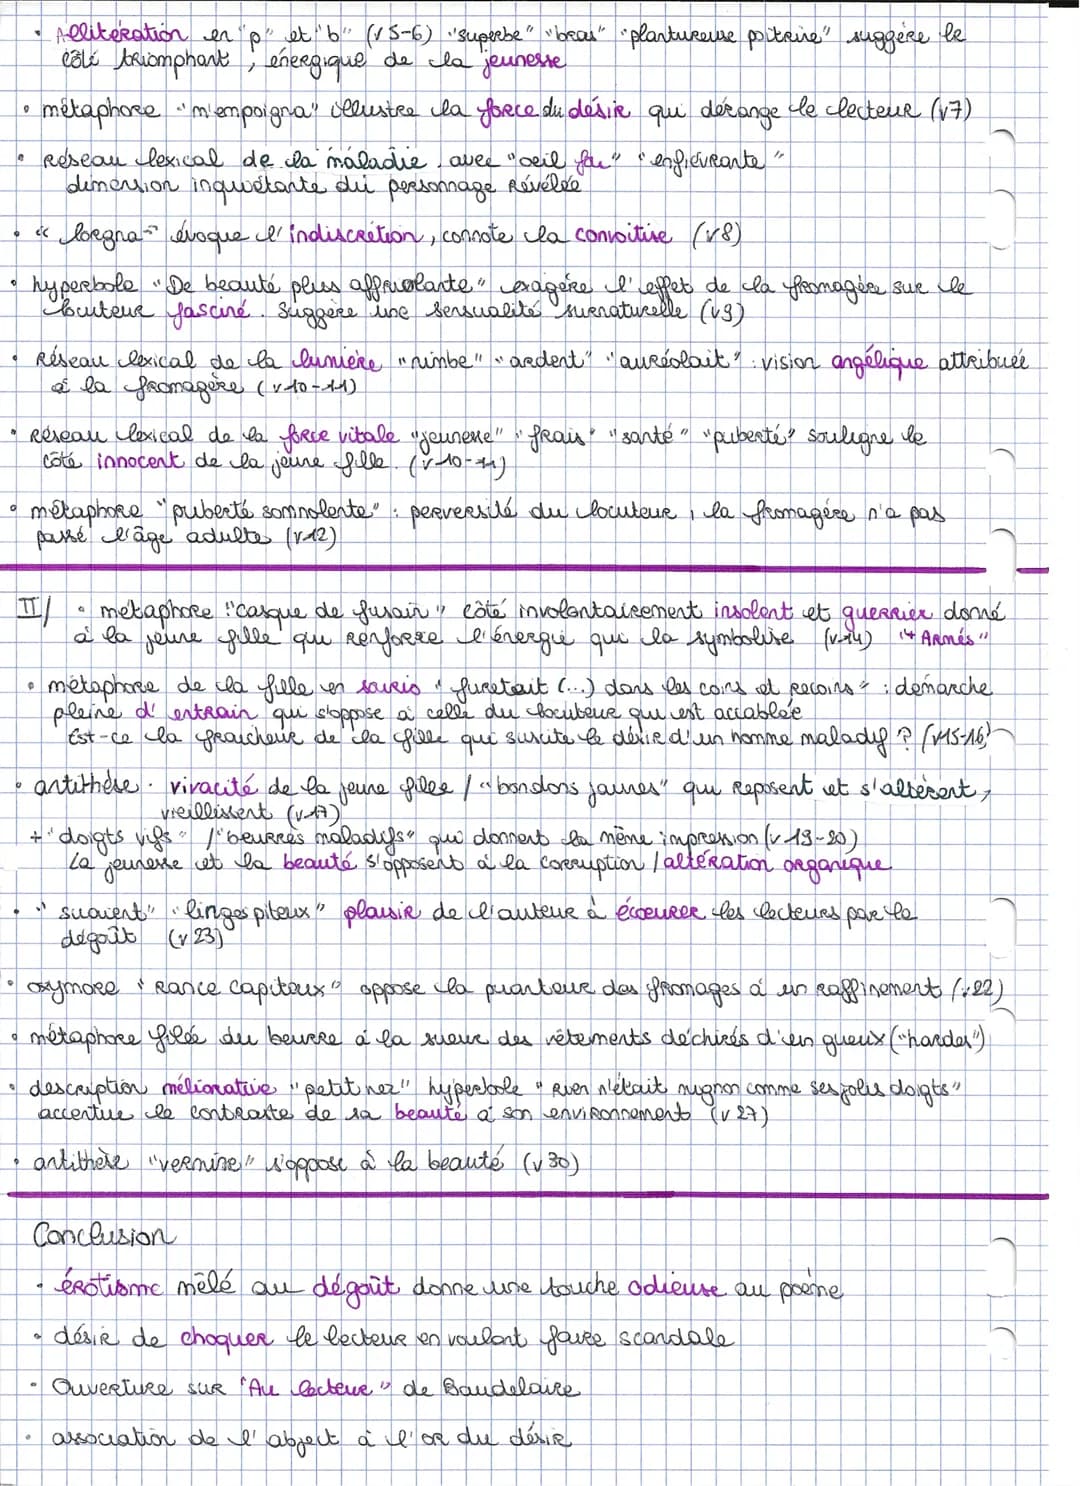 • Allitération en "p" et "b" (v 5-6) "superbe" "bras" "plantureuse poitrine" suggère le
côté triomphant, énergique de la jeunesse
• métaphore "m'empoigna" illustre la force du désir qui dérange le lecteur (v7)
• Réseau lexical de la maladie avec "oeil fou" "enfiévrante"
dimension inquiétante du personnage Révélée
• "lorgna" évoque l'indiscrétion, connote la convoitise (v8)
• hyperbole "De beauté plus affriolante" exagère l'effet de la fromagère sur le
locuteur fasciné. Suggère une sensualité surnaturelle (v9)
• Réseau lexical de la lumière "nimbe" "ardent" "auréolait" : vision angélique attribuée
à la fromagère (v 10-11)
• Réseau lexical de la force vitale "jeunesse" "frais" "santé" "puberté" souligne le
côté innocent de la jeune fille. (v 10-11)
• métaphore "puberté somnolente" : perversité du locuteur, la fromagère n'a pas
passé l'âge adulte (v12)
II/ • métaphore "casque de fusain" côté involontairement insolent et guerrier donné
à la jeune fille qui renforce l'énergie qui la symbolise (v14) "+ Armés"
• métaphore de la fille en souris "furetait (...) dans les coins et recoins" : démarche
pleine d'entrain qui s'oppose à celle du locuteur qui est accablée
Est-ce la fraicheur de la fille qui suscite le désir d'un homme maladif ? (v15-16)
• antithèse : vivacité de la jeune fille / "bondons jaunes" qui reposent et s'altèrent,
vieillissent (v17)
+ "doigts vifs" / "beurres maladifs" qui donnent la même impression (v 19-20)
La jeunesse et la beauté s'opposent à la corruption / altération organique
• "suaient" "linges piteux" plaisir de l'auteur à écoeurer les lecteurs par le
dégoût (v 23)
• oxymore "Rance capiteux" oppose la puanteur des fromages à un raffinement (v22)
• métaphore filée du beurre à la sueur des vêtements déchirés d'un gueux ("hardes")
• description méliorative "petit nez" hyperbole "Rien n'était mignon comme ses jolis doigts"
accentue le contraste de sa beauté à son environnement (v 27)
• antithèse "vermine" s'oppose à la beauté (v 30)
Conclusion
• érotisme mêlé au dégoût donne une touche odieuse au poème
• désir de choquer le lecteur en voulant faire scandale
• Ouverture sur "Au lecteur" de Baudelaire
• association de l'abject à l'or du désir